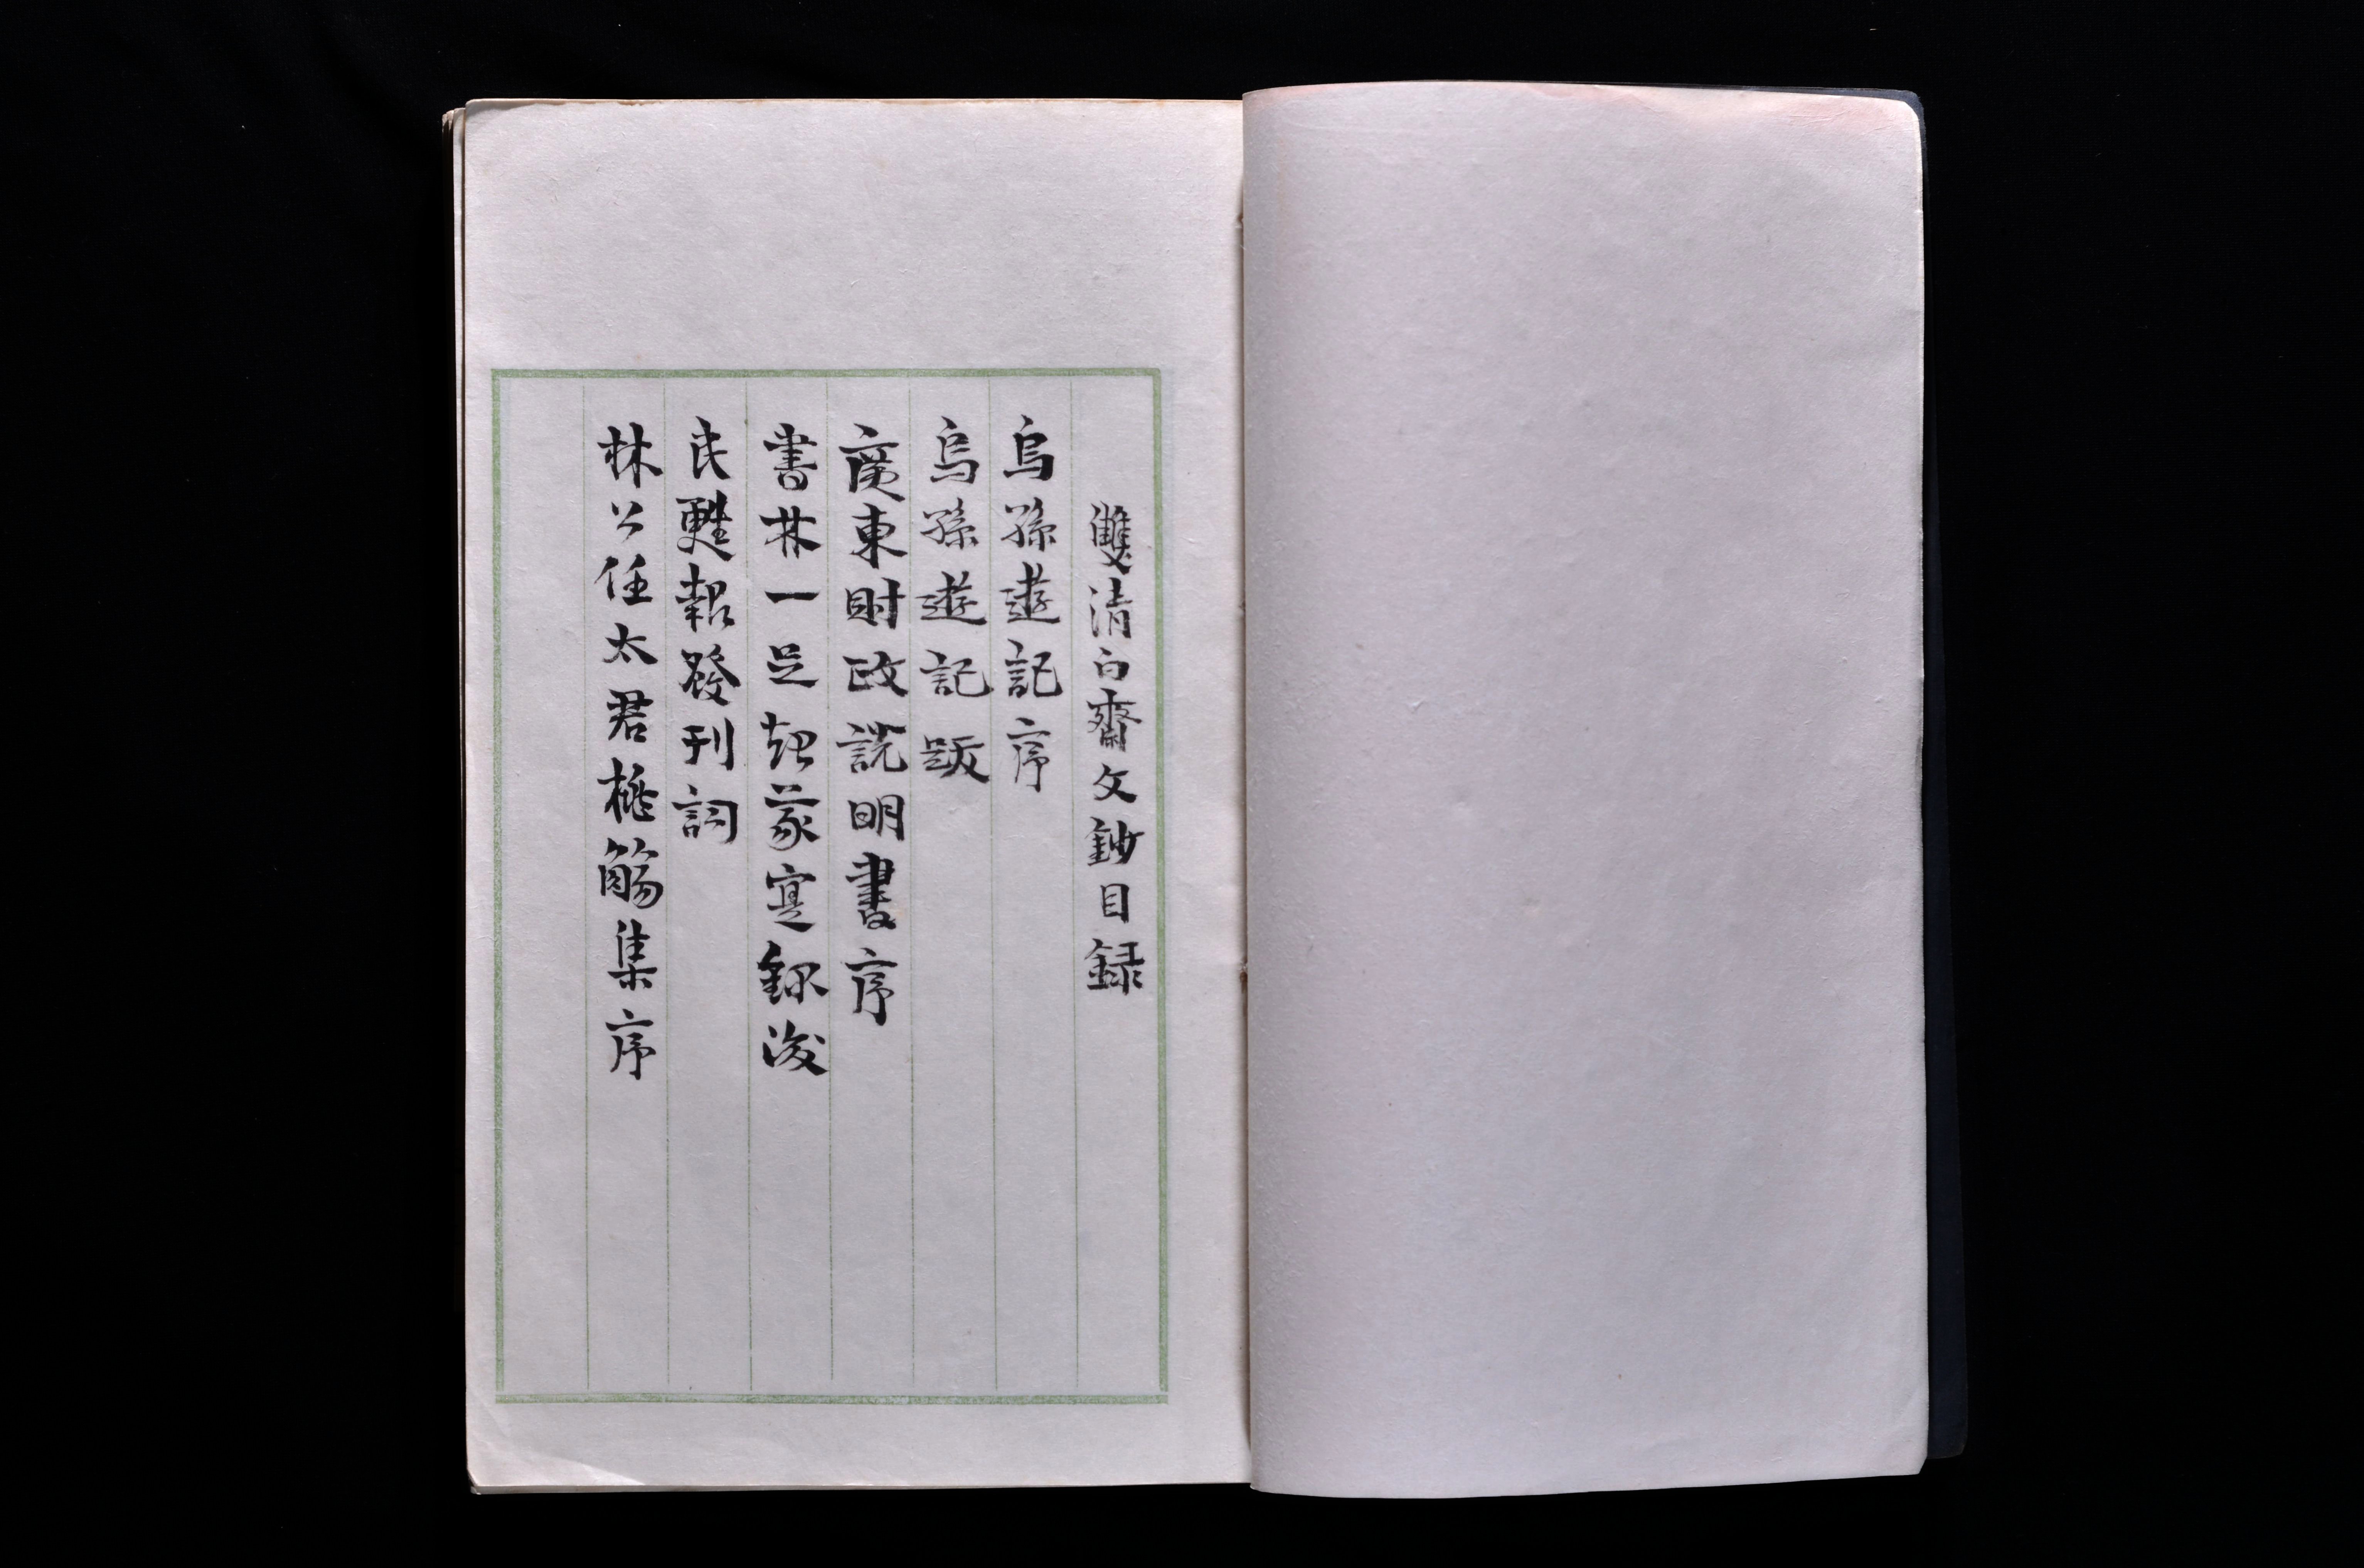 雙清白齋文鈔目録
烏孫遊記序
烏孫遊記跋
廣東財政說明書序
書林一足蒙寔錄後
民甦報發刊詞
林公任太君桃觴集序